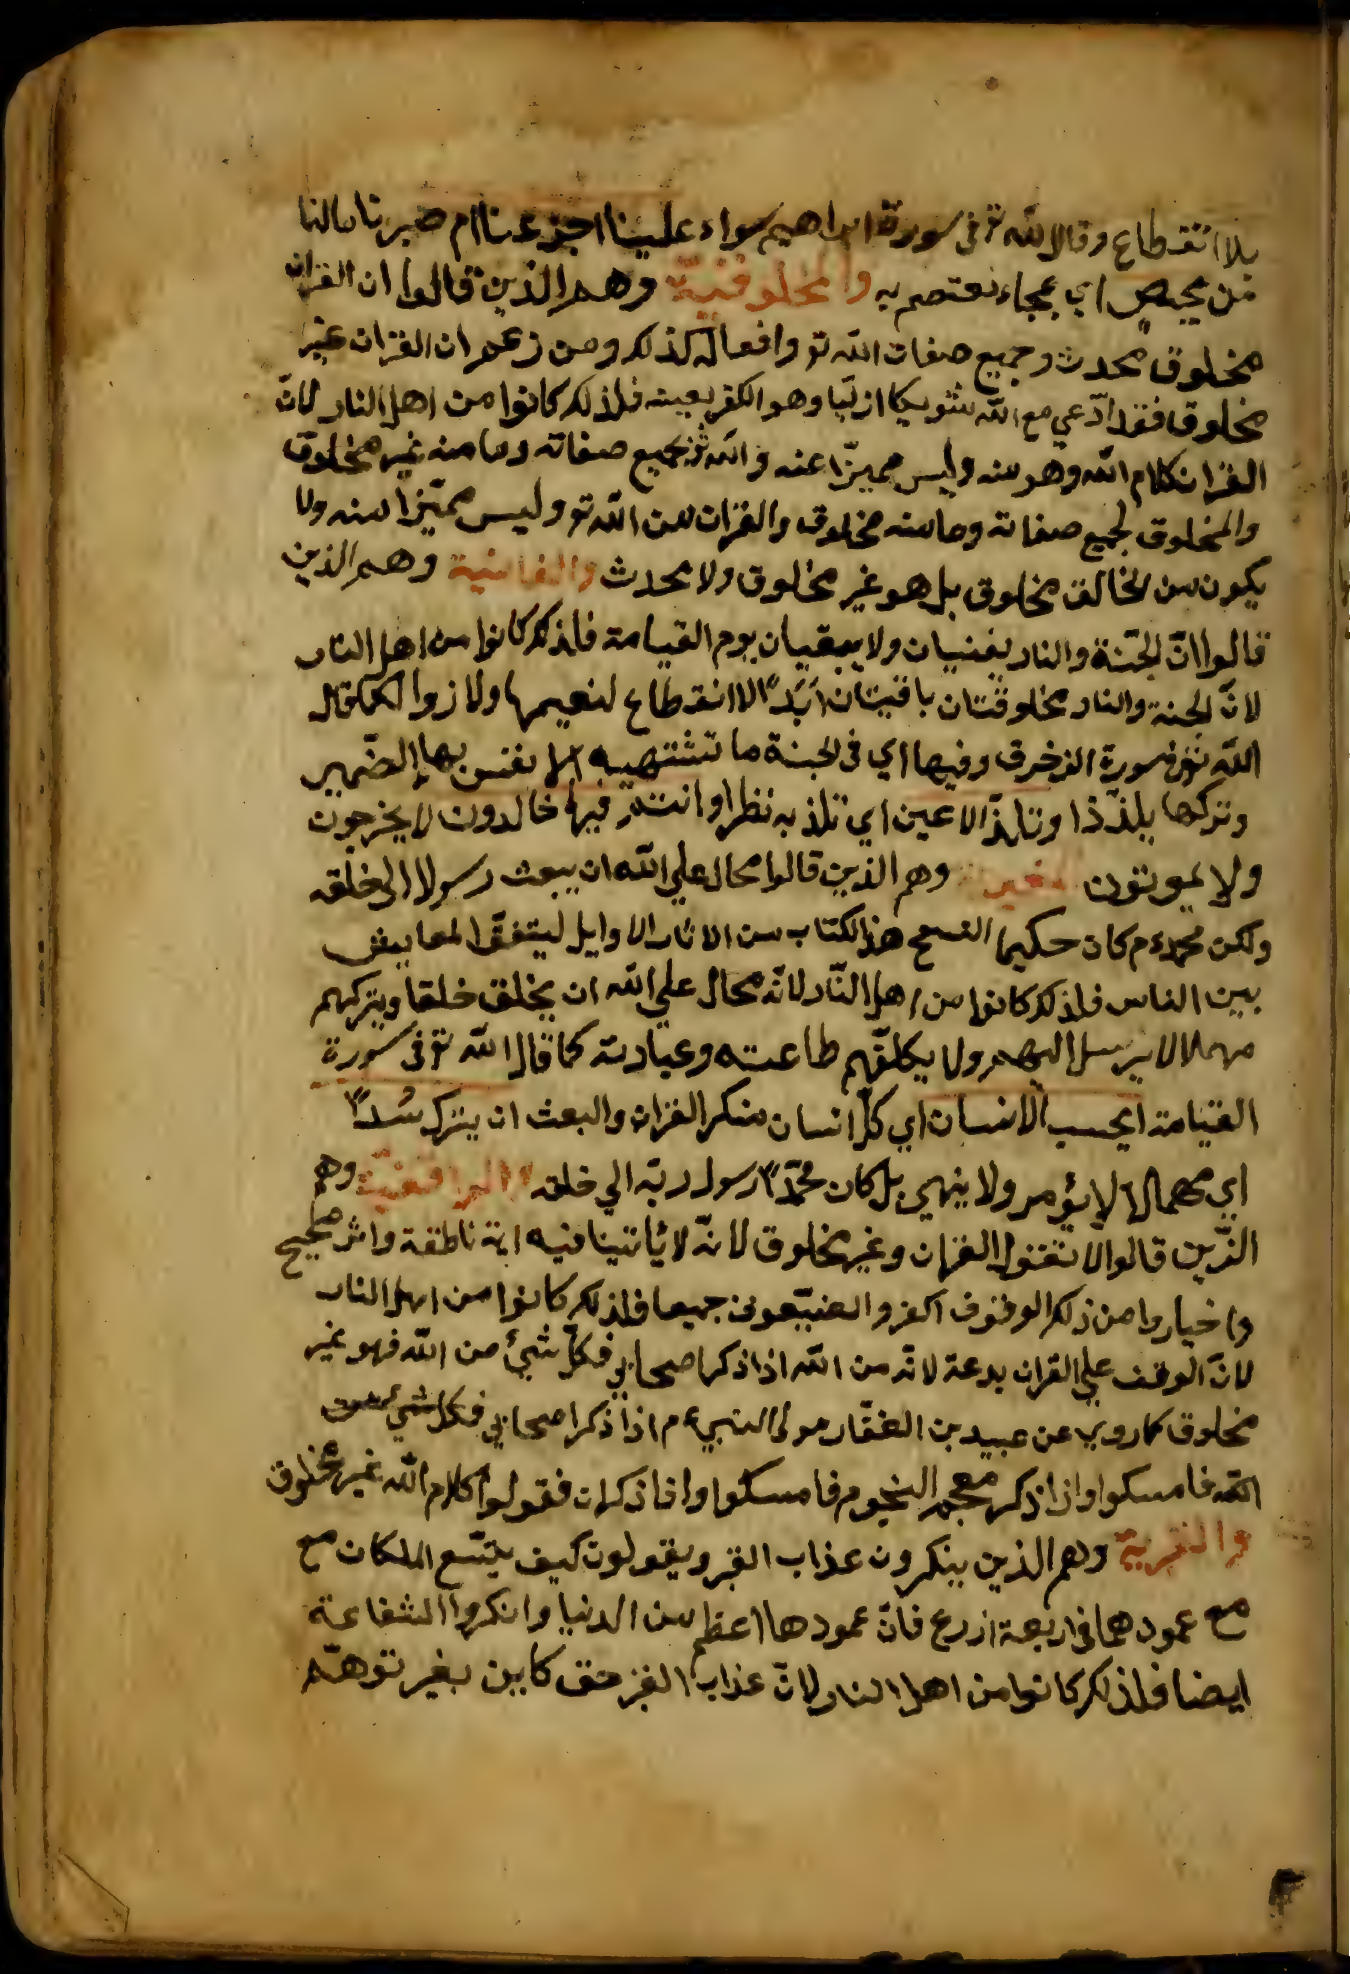 بلا انقطاع وقال الله تع فى سورة ابراهيم سواء علينا اجزعنا ام صبرنا مالنا
من محيص اي بمجاء نعتصم به والمخلوقية وهم الذين قالوا ان القران
مخلوق محدث وجميع صفات الله تع وافعاله كذلك ومن زعم ان القران غير
مخلوق فقد ادّعي مع الله شريكا ازليّا وهو الكفر بعينه فلذلك كانوا من اهل النار لانّ
القران كلام الله وهو منه وليس مميزّا عنه والله تع بجميع صفاته وما منه غير مخلوق
والمخلوق بجميع صفاته وما منه مخلوق والقران من الله تع وليس مميّزا منه ولا
يكون من الخالق مخلوق بل هو غير مخلوق ولا محدث والفانية وهم الذين
قالوا انّ الجنّة والنار يفنيان ولا يبقيان يوم القيامة فلذلك كانوا من اهل النار
لانّ الجنة والنار مخلوقتان باقيتان ابَدًا لا انقطاع لنعيمها ولا زوال كما قال
الله تع فى سورة الزخرف وفيها اي فى الجنة ما تشتهيه الانفس بها الضمير
وتركها يلذّذا وتلذّ الاعين اي تلذ به نظرا وانتم فيها خالدون لا يخرجون
ولا يموتون وهم الذين قالوا محال علي الله ان يبعث رسولا الى خلقه
ولكن محمد ءم كان حكيما هذا الكتاب من الاثار الاوايل ليتفق المعايش
بين الناس فلذلك كانوا من اهل النّار لانّه محال علي الله ان يخلق خلقا ويتركهم
مهملا لا يرسل اليهم ولا يكلّفهم طاعته وعبادته كما قال الله تع فى سورة
القيامة ايحسب الانسان اي كلّ انسان منكر القران والبعث ان يترك سُدًا
اي مهملا لا يؤمر ولا ينهي بل كان محمّدًا رسول ربّه الي خلقه والواقفيّة وهم
الذّين قالوا لا نقول القران وغير مخلوق لانّه لا يأتينا فيه اية ناطقة واثر صحيح
واختاروا من ذلك الوقوف جميعا فلذلك كانوا من اهل النار
لانّ الوقف علي القران بدعة لانّه من الله اذا ذكر اصحابي فكلّ شيئ من الله فهو غير
مخلوق كما روي عن عبيد بن الغفّار مولى النبي ءم اذا ذكر اصحابي فكل شيئ من
الله فامسكوا واذا ذكر النجوم فامسكوا واذا ذكر ان فقولوا كلام الله غير مخلوق
والقبرية وهم الذين ينكرون عذاب القبر ويقولون كيف يتسع الملكان مع
مع عمودهما فى اربعة ازرع فانّ عمودهما اعظم من الدنيا وانكروا الشفاعة
ايضا فلذلك كانوا من اهل النار لانّ عذاب القبر حق كاين بغير توهّم